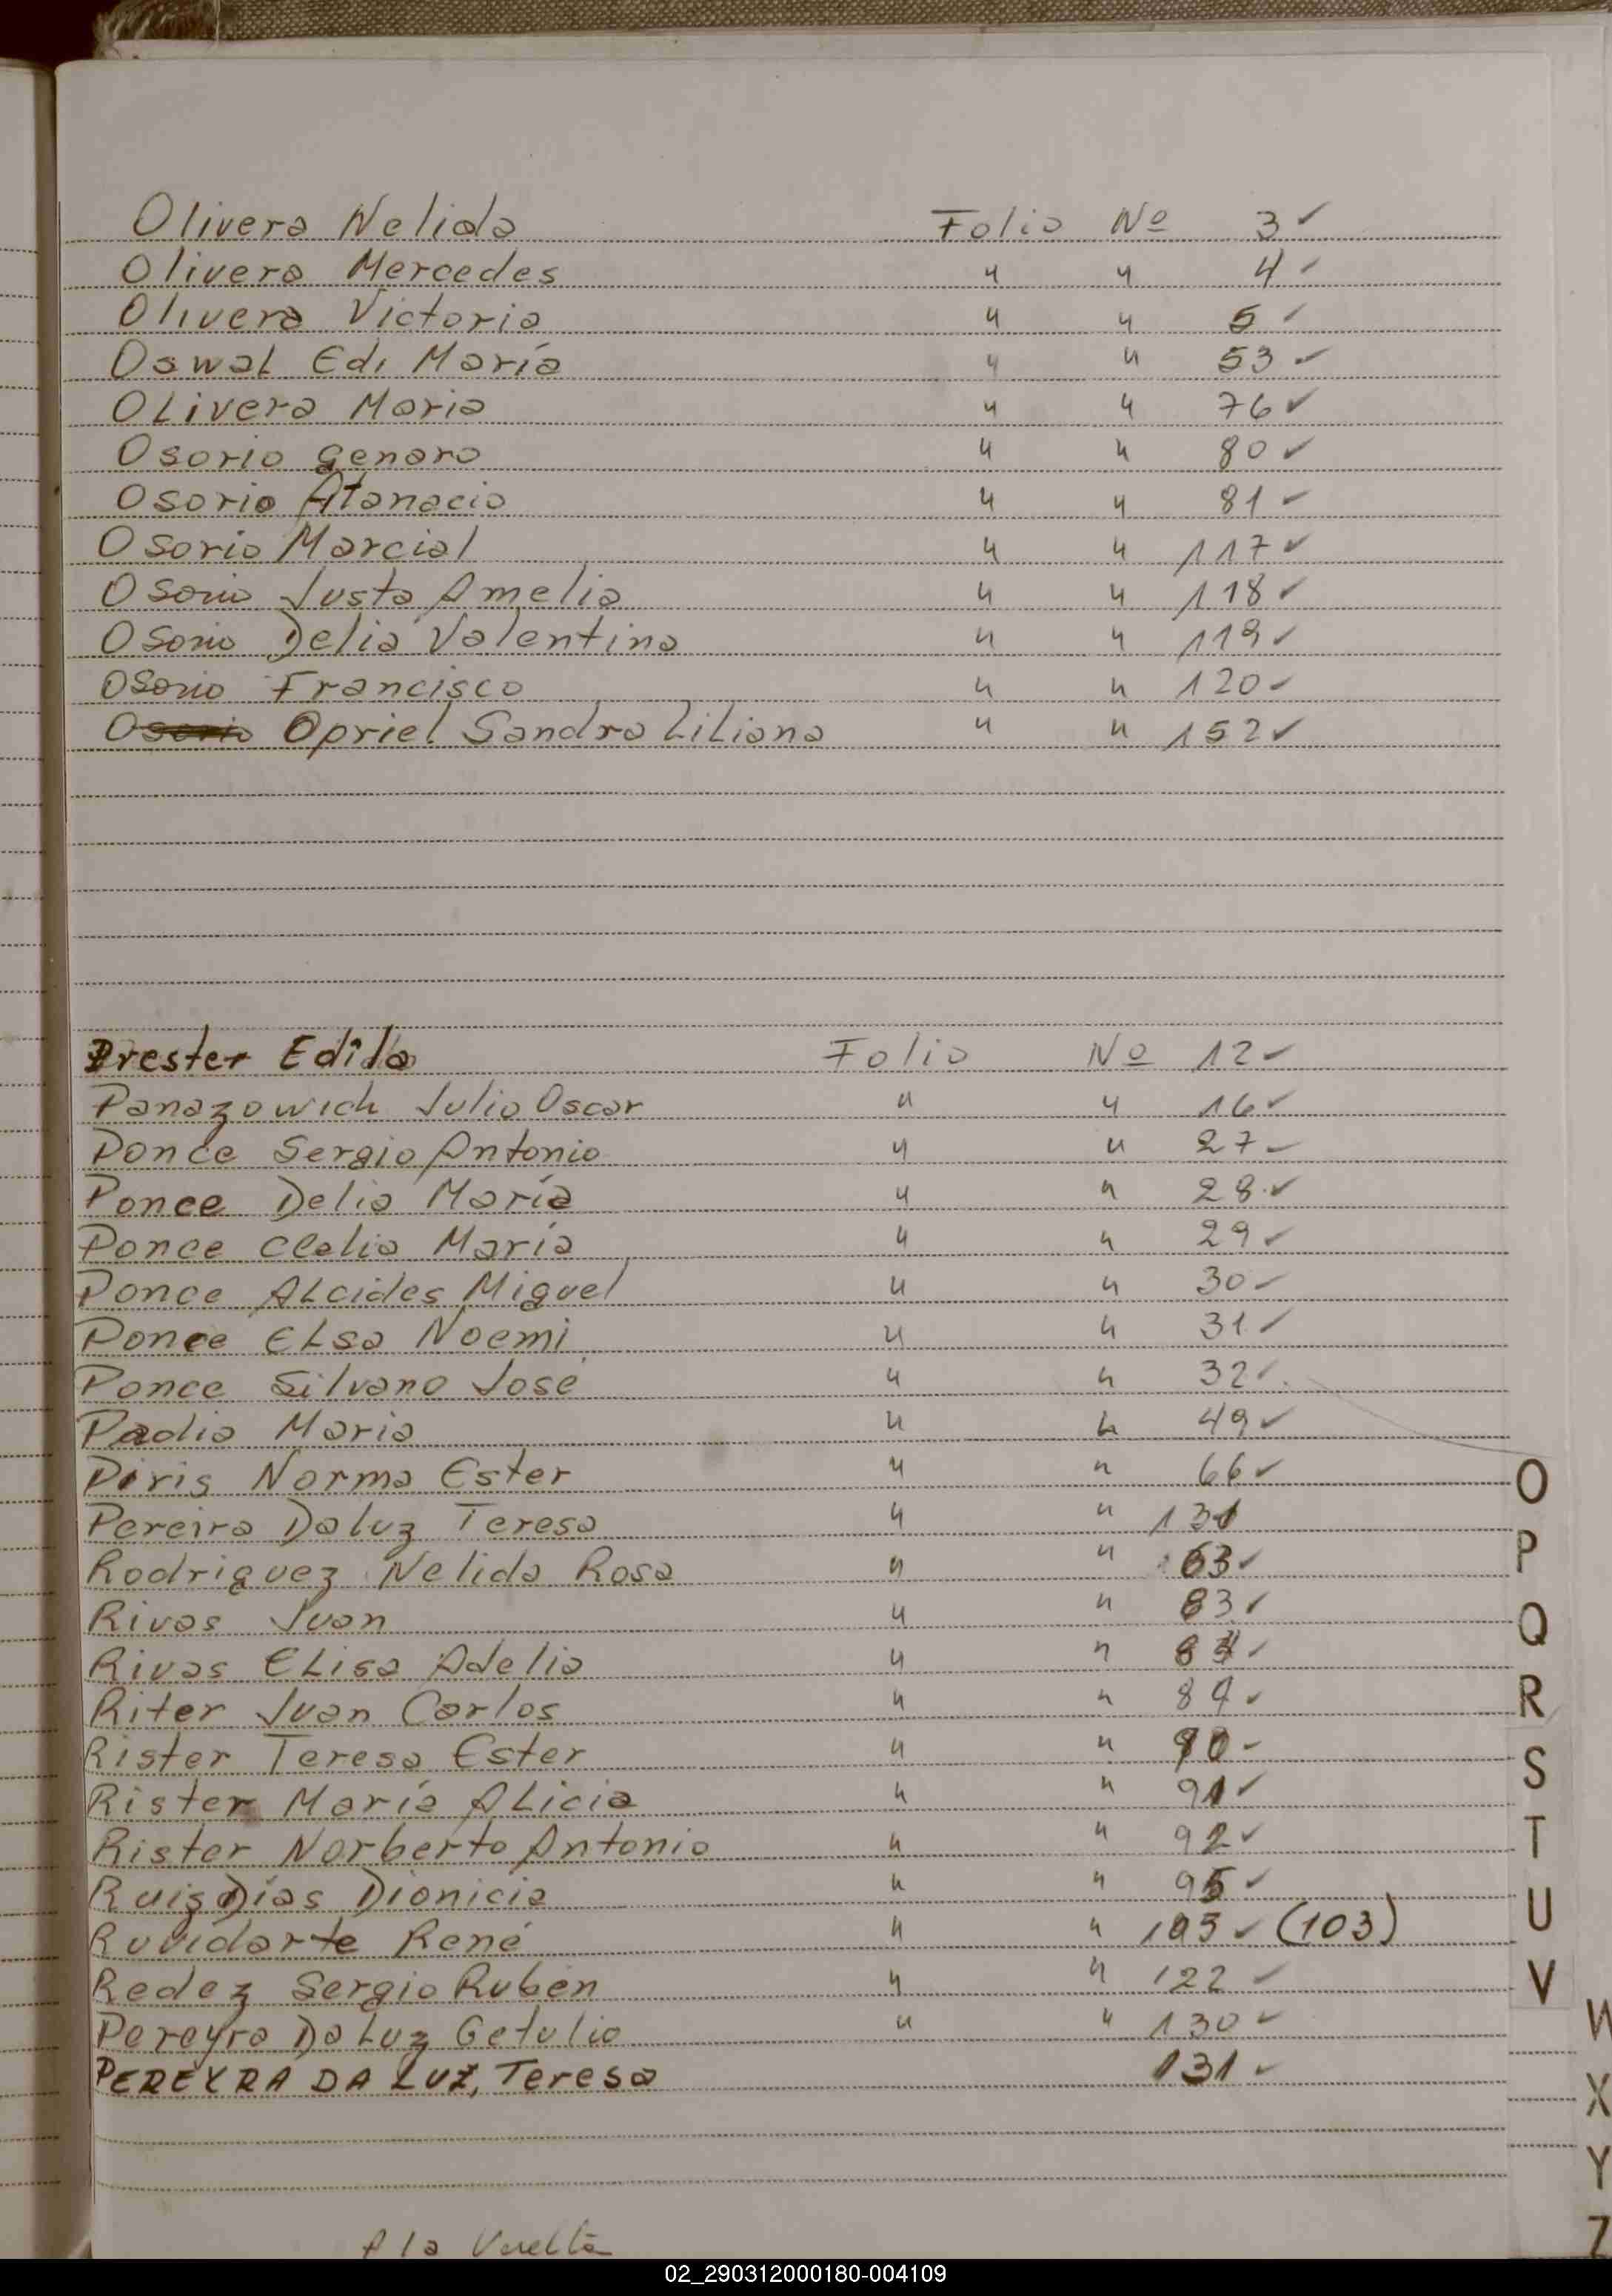 Olivera Nelida Folio Nº 3 ✓
Olivera Mercedes " " 4 ✓
Olivera Victoria " " 5 ✓
Oswal Edi María " " 53 ✓
Olivera Maria " " 76 ✓
Osorio Genaro " " 80 ✓
Osorio Atanacio " " 81 ✓
Osorio Marcial " " 117 ✓
Osorio Justa Amelia " " 118 ✓
Osorio Delia Valentina " " 119 ✓
Osorio Francisco " " 120 ✓
Osorio Opriel Sandra Liliana " " 152 ✓
Prester Edida Folio Nº 12 ✓
Panazowich Julio Oscar " " 16 ✓
Ponce Sergio Antonio " " 27 ✓
Ponce Delia María " " 28 ✓
Ponce Clelia María " " 29 ✓
Ponce Alcides Miguel " " 30 ✓
Ponce Elsa Noemi " " 31 ✓
Ponce Silvano José " " 32 ✓
Padia Maria " " 49 ✓
Piris Norma Ester " " 66 ✓
Pereira Daluz Teresa " " 131
Rodriguez Nelida Rosa " " 63 ✓
Rivas Juan " " 83 ✓
Rivas Elisa Adelia " " 84 ✓
Riter Juan Carlos " " 89 ✓
Rister Teresa Ester " " 90 ✓
Rister María Alicia " " 91 ✓
Rister Norberto Antonio " " 92 ✓
Ruiz Días Dionicia " " 95 ✓
Ruvidarte René " " 103 ✓ (103)
Redez Sergio Rubén " " 122 ✓
Pereyra Da Luz Getulio " " 130 ✓
PEREYRA DA LUZ, Teresa 131 ✓
A la Vuelta
O
P
Q
R
S
T
U
V
W
X
Y
Z
02_290312000180-004109